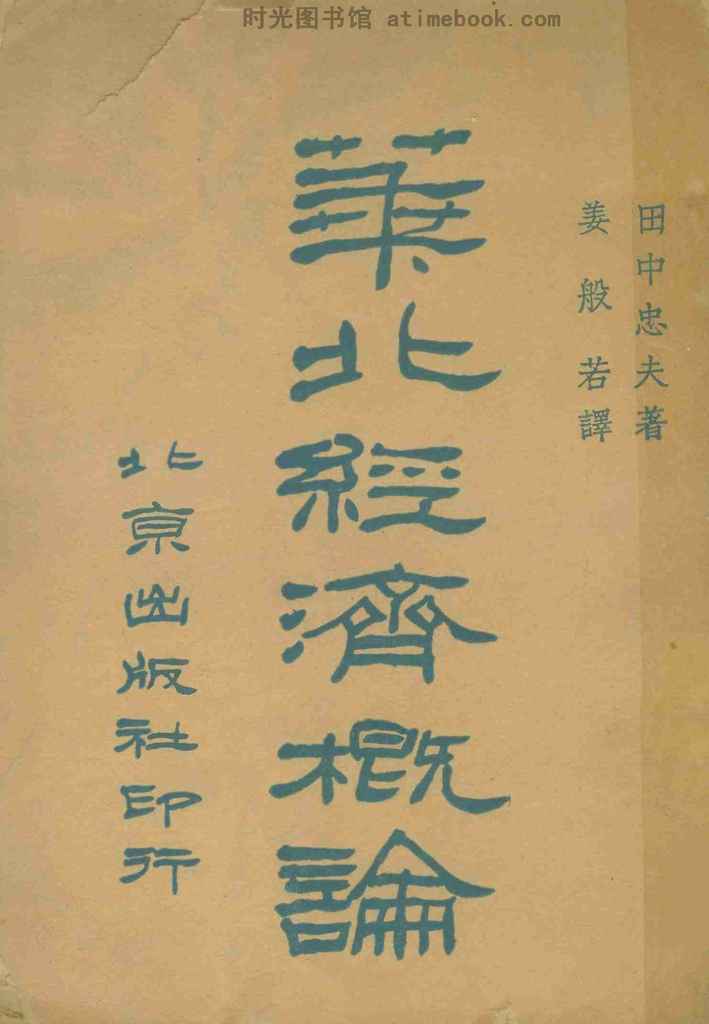 时光图书馆 atimebook.com
田中忠夫著
姜般若譯
華北經濟概論
北京出版社印行